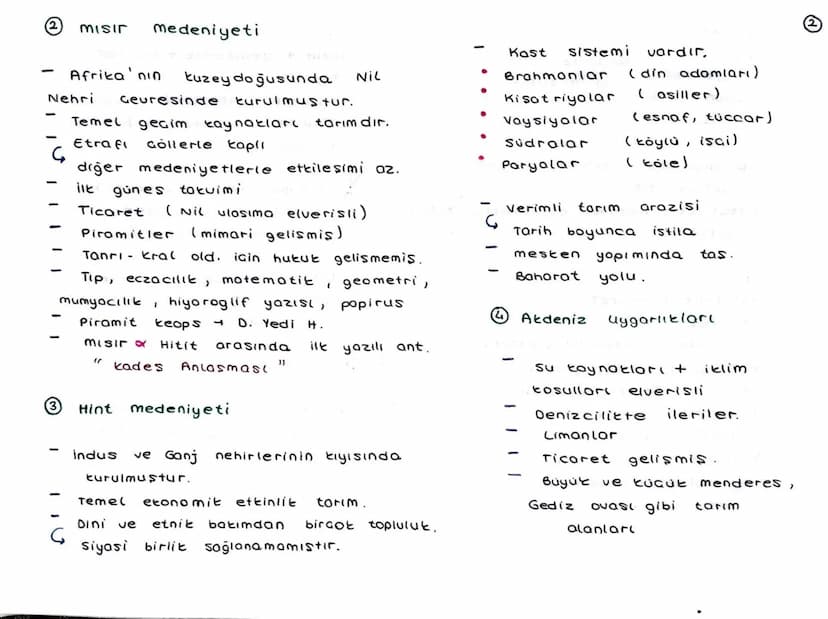 ② mısır medeniyeti
- Afrika'nın kuzeydoğusunda Nil
Nehri çevresinde kurulmuştur.
- Temel geçim kaynakları tarımdır.
- Etrafı çöllerle kaplı
diğer medeniyetlerle etkileşimi az.
- ilk güneş takvimi
- Ticaret ( Nil ulaşıma elverişli)
- Piramitler (mimari gelişmiş)
- Tanrı - kral old. için hukuk gelişmemiş.
- Tıp, eczacılık, matematik, geometri,
mumyacılık, hiyeroglif yazısı, papirus
- Piramit keops → D. Yedi H.
- mısır × Hitit arasında ilk yazılı ant.
" kadeş Anlaşması "
③ Hint medeniyeti
- indus ve Ganj nehirlerinin kıyısında
kurulmuştur.
- Temel ekonomik etkinlik tarım.
- Dini ve etnik bakımdan birçok topluluk.
Siyasi birlik sağlanamamıştır.
②
- Kast sistemi vardır.
• Brahmanlar (din adamları)
• Kişatriyalar ( asiller)
• Vaysiyalar (esnaf, tüccar)
• Südralar (köylü, işçi)
• Paryalar ( köle)
- verimli tarım arazisi
Tarih boyunca istila
- mesken yapımında taş.
- Baharat yolu.
④ Akdeniz uygarlıkları
- su kaynakları + iklim
koşulları elverişli
- Denizcilikte ileriler.
- Limanlar
- Ticaret gelişmiş.
- Büyük ve küçük menderes,
Gediz ovası gibi tarım
alanları